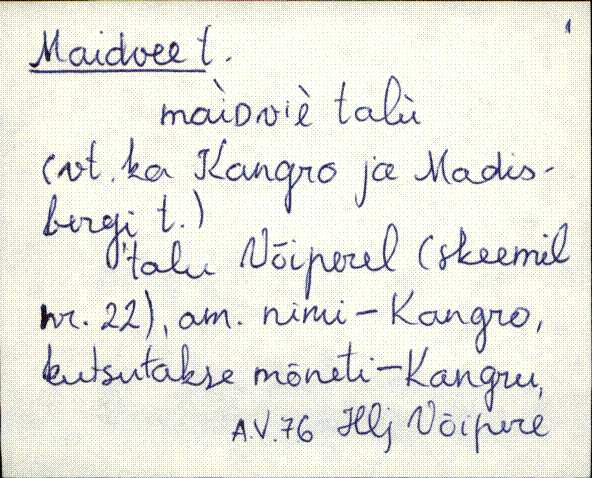 1
Maidvee t.
màiDviè talù
(vt. ka Kangro ja Madis-
bergi t.)
talu Võiperel (skeemil
nr. 22), am. nimi – Kangro,
kutsutakse mõneti – Kangru,
A.V. 76 Hlj Võipere